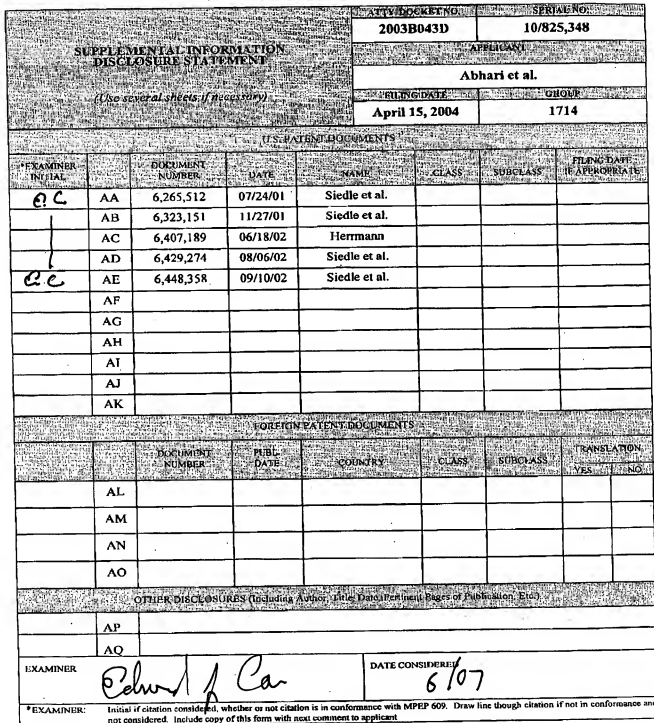 ATTY DOCKET NO. SERIAL NO.
2003B043D 10/825,348
SUPPLEMENTAL INFORMATION
DISCLOSURE STATEMENT
APPLICANT
Abhari et al.
(Use several sheets if necessary)
FILING DATE GROUP
April 15, 2004 1714
U.S. PATENT DOCUMENTS
*EXAMINER INITIAL DOCUMENT NUMBER DATE NAME CLASS SUBCLASS FILING DATE IF APPROPRIATE
e.C. AA 6,265,512 07/24/01 Siedle et al.
AB 6,323,151 11/27/01 Siedle et al.
AC 6,407,189 06/18/02 Herrmann
AD 6,429,274 08/06/02 Siedle et al.
e.C. AE 6,448,358 09/10/02 Siedle et al.
AF
AG
AH
AI
AJ
AK
FOREIGN PATENT DOCUMENTS
DOCUMENT NUMBER PUBL. DATE COUNTRY CLASS SUBCLASS TRANSLATION
YES NO
AL
AM
AN
AO
OTHER DISCLOSURES (Including Author, Title, Date, Pertinent Pages of Publication, Etc.)
AP
AQ
EXAMINER DATE CONSIDERED
6/07
*EXAMINER: Initial if citation considered, whether or not citation is in conformance with MPEP 609. Draw line though citation if not in conformance and
not considered. Include copy of this form with next comment to applicant